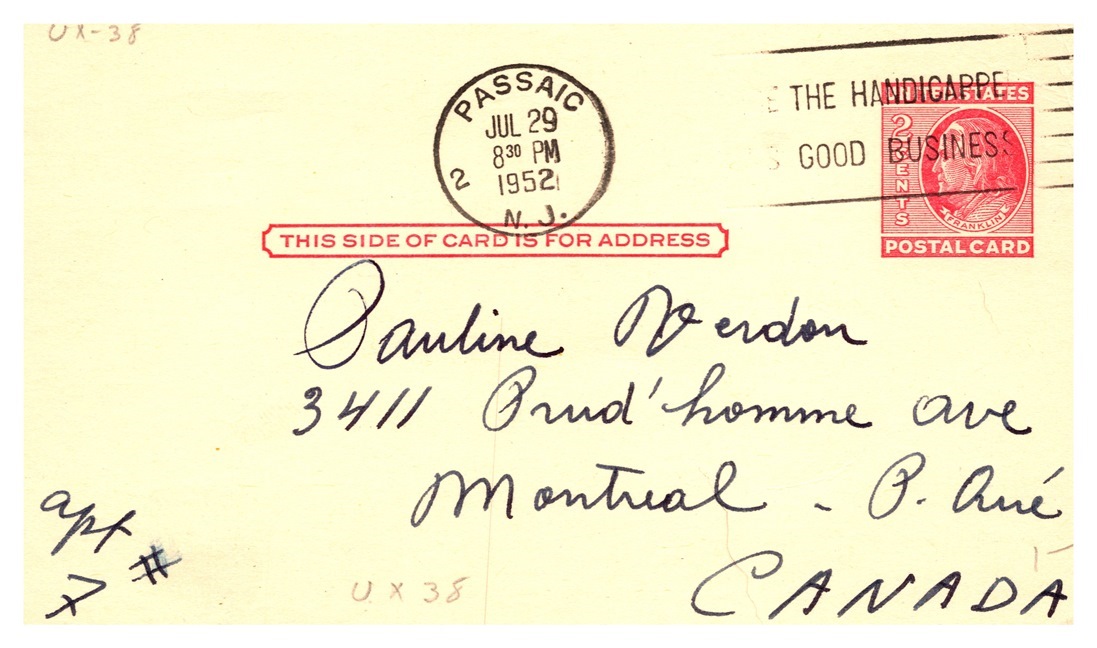 UX-38
PASSAIC
JUL 29
8 30 PM
1952
2
N. J.
THE HANDICAPPE
GOOD BUSINESS
UNITED STATES
2 CENTS
FRANKLIN
POSTAL CARD
THIS SIDE OF CARD IS FOR ADDRESS
Pauline Verdon
3411 Prud'homme ave
Montreal - P. Qué
CANADA
apt
7 #
UX 38